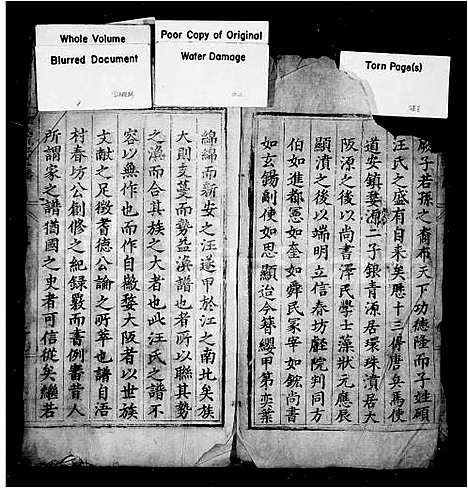 Whole Volume
Blurred Document
Poor Copy of Original
Water Damage
Torn Page(s)
厥子若孫之裔布天下功德隆而子姓碩
汪氏之盛有自耒矣歷十三傳唐兵馬使
道安鎮婺源二子銀青源居環珠濆居大
阪源之後以尚書澤民學士藻狀元應辰
顯濆之後以端明立信春坊叡院判同方
伯如進都憲如奎如舜民冢宰如鋐尚書
如玄錫副使如思顯迨今簮纓甲第奕葉
綿綿而新安之汪遂甲於江之南北矣族
大則支蔓而勢益渙譜也者所以聯其勢
之渙而合其族之大者也此汪氏之譜不
容以無作也而作自徽婺大阪者以世族
文献之足徴耆德公論之所萃也譜自浯
村春坊公創修之紀録嚴而書例審昔人
所謂家之譜猶國之史者可信從矣繼若